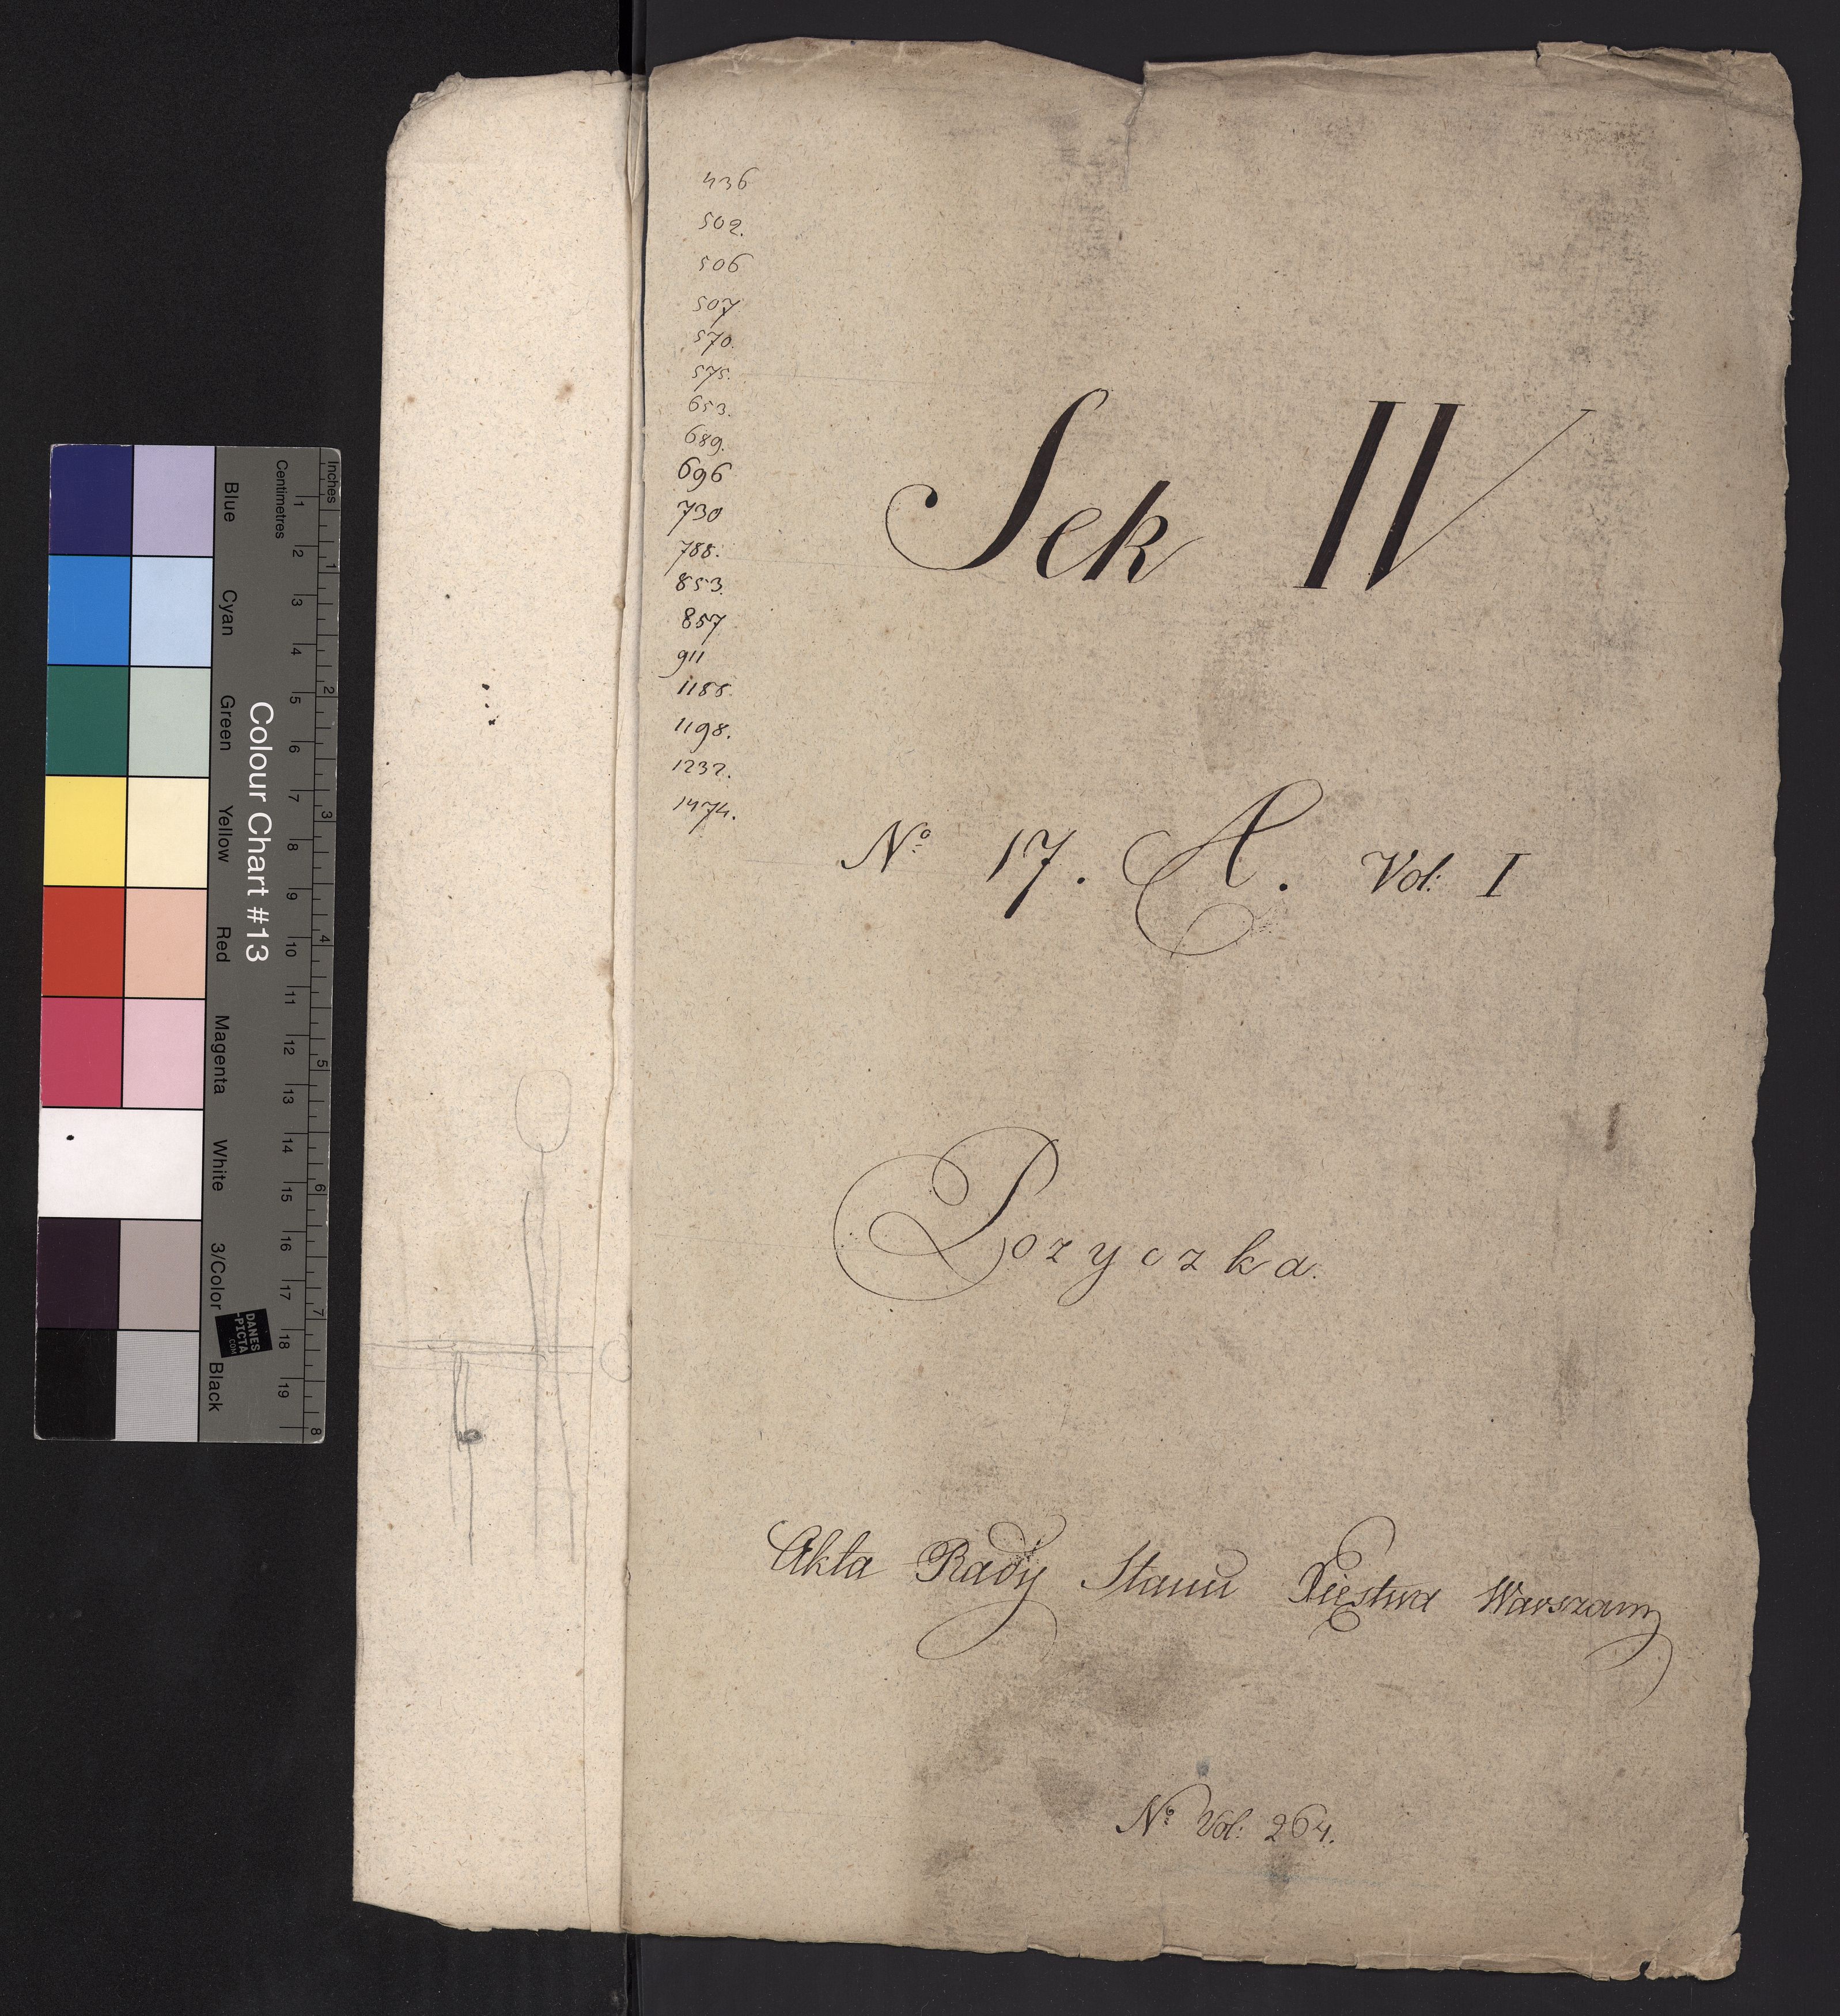 436
502.
506
507
570.
575.
653.
689.
696
730
788.
853.
857
911
1188.
1198.
1232.
1474.
Sek IV
Nº 17. A. Vol: I
Pozyczka.
Akta Rady Stanu Xięstwa Warszaw
Nº Vol: 264.
Inches
Centimetres
1 2 3 4 5 6 7 8
1 2 3 4 5 6 7 8 9 10 11 12 13 14 15 16 17 18 19
Colour Chart #13
Blue
Cyan
Green
Yellow
Red
Magenta
White
3/Color
Black
DANES
-PICTA
.COM